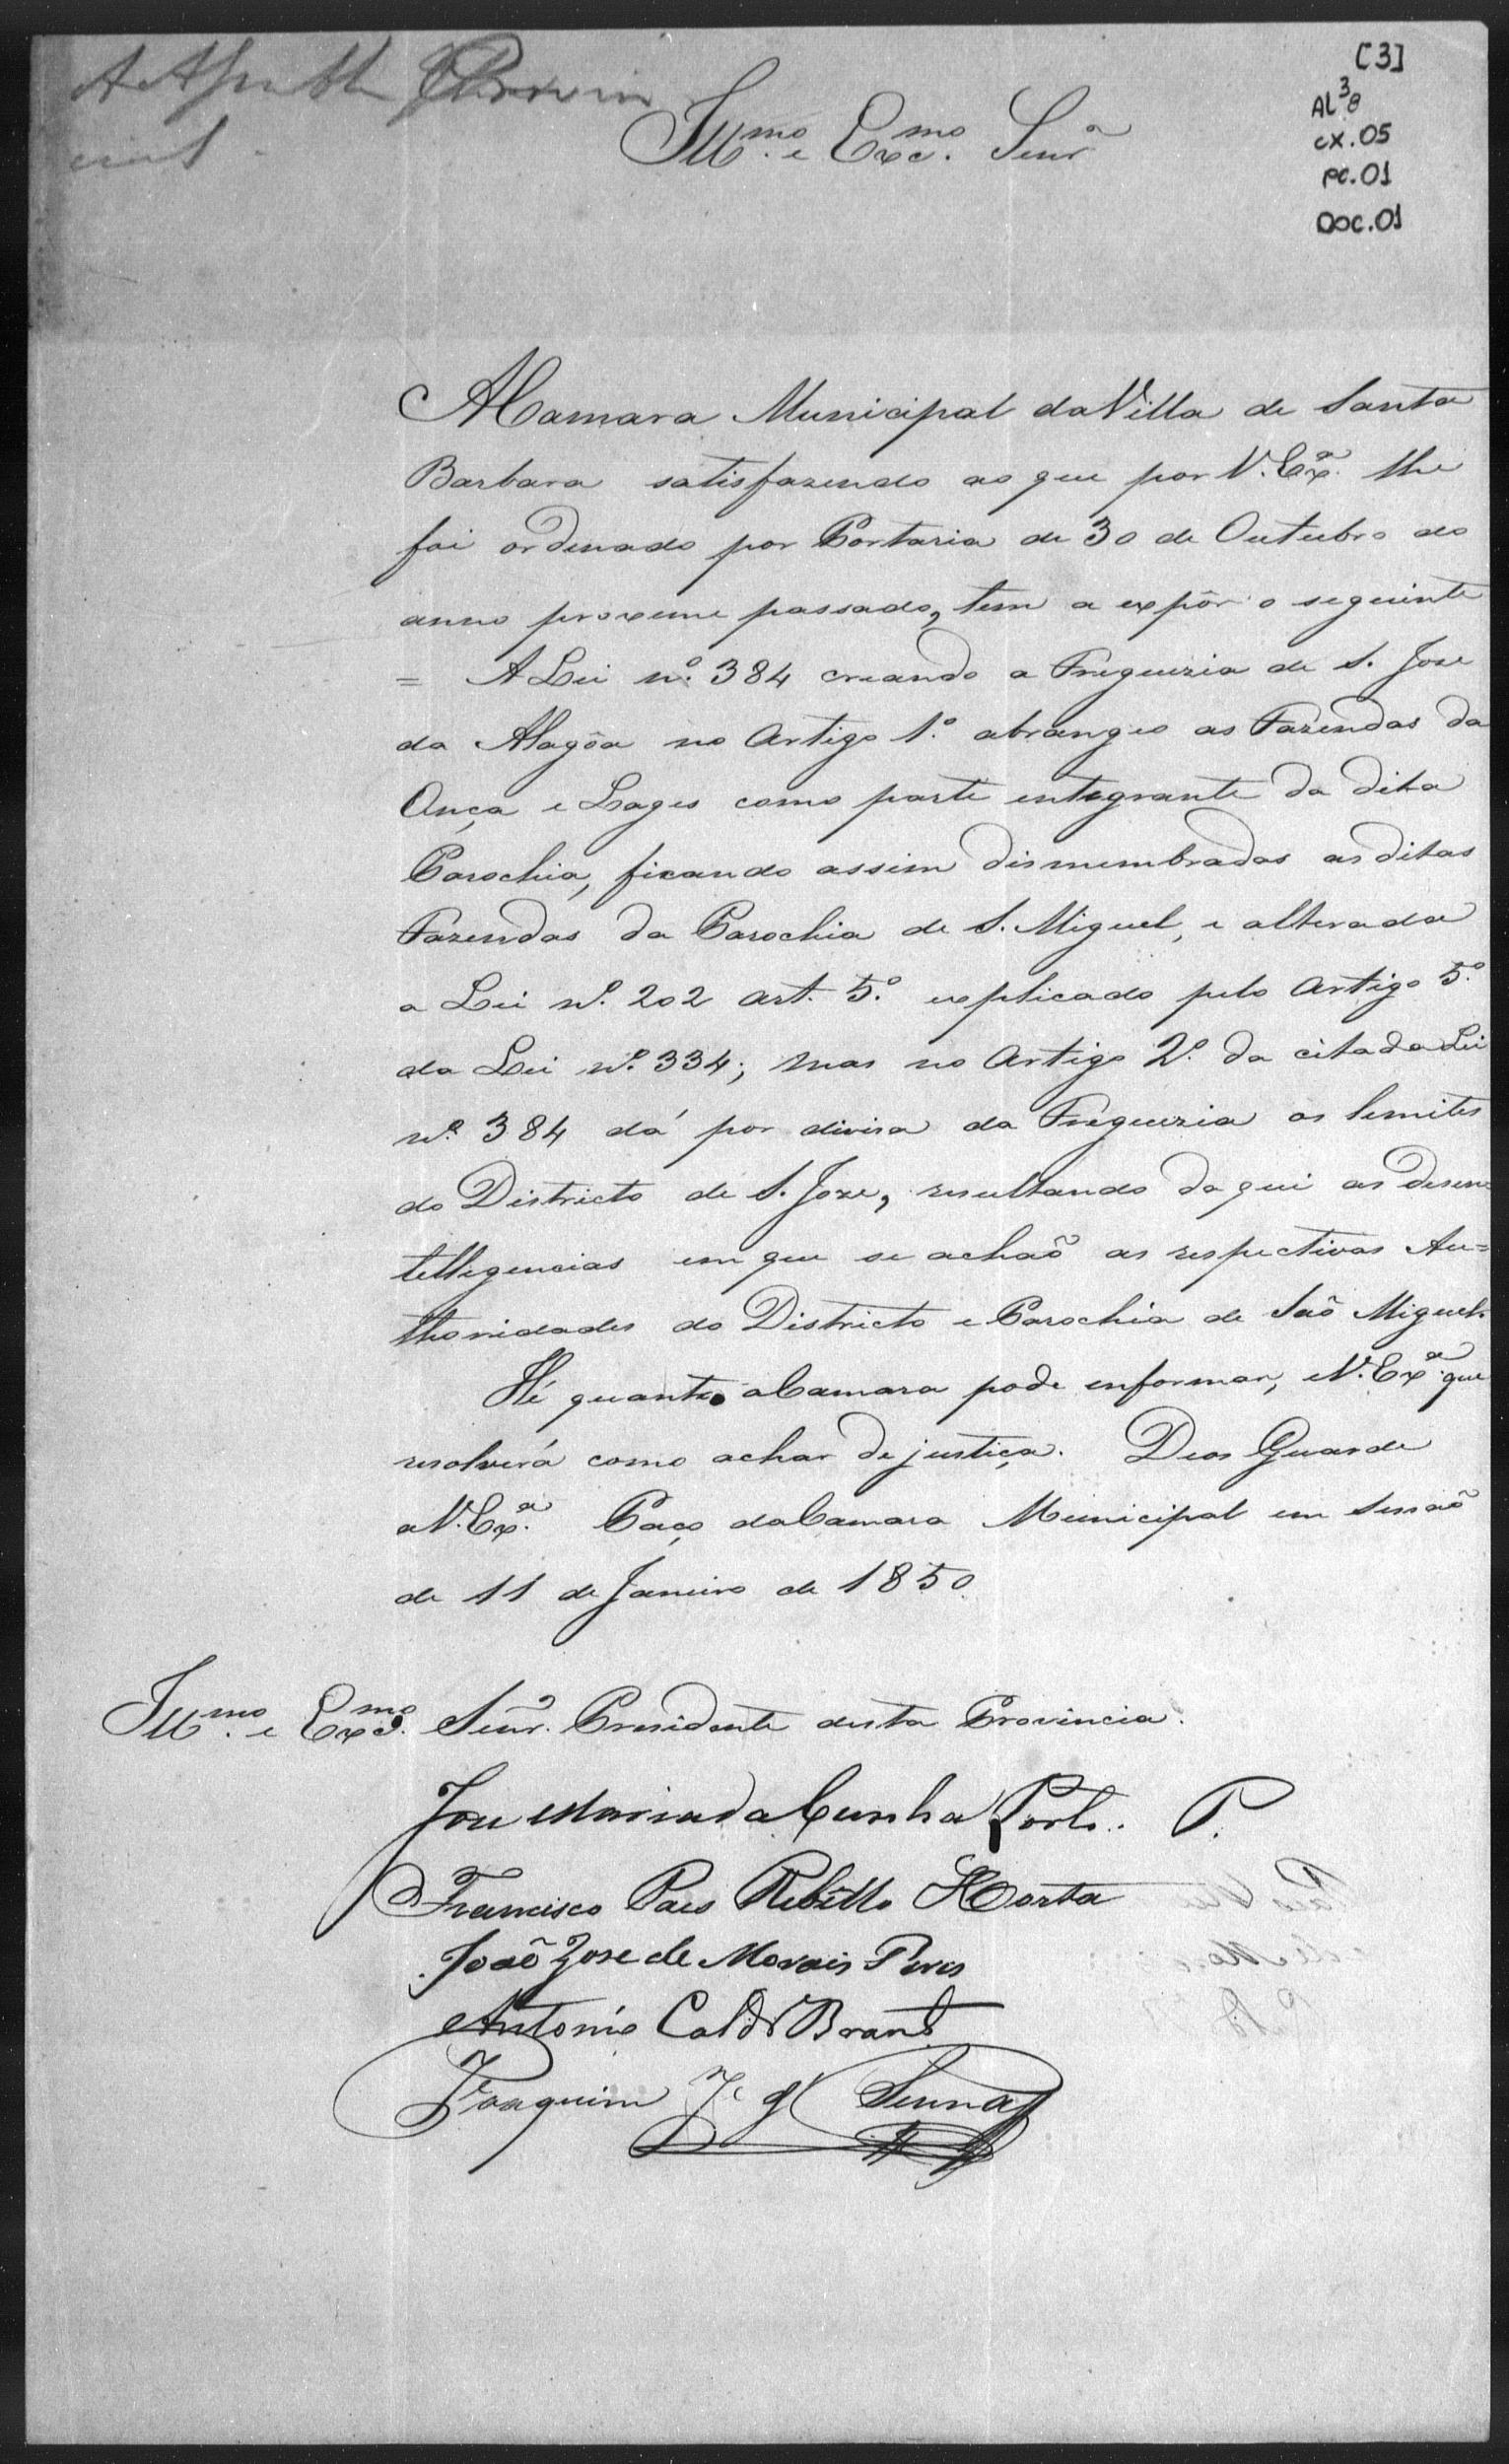 A Assemblea Provin
cial.
[3]
AL 3 8
cx.05
pc.01
Doc.01
Illmo. e Excmo. Senr
A Camara Municipal da Villa de Santa
Barbara satisfazendo ao que por V. Exa. lhe
foi ordenado por Portaria de 30 de Outubro do
anno proxeme passado, tem a expôr o seguinte
= A Lei nº. 384 creando a Freguezia de S. Jose
da Alagôa no Artigo 1º. abrangeo as Fazendas da
Onça e Lages como parte entegrante da dita
Parochia, ficando assim dismembradas as ditas
Fazendas da Parochia de S. Miguel, e alterada
a Lei nº. 202 art. 5º. explicado pelo Artigo 5º.
da Lei nº. 334; mas no Artigo 2º. da citada Lei
nº. 384 dá por divisa da Freguezia os lemites
do Districto de S. Joze, resultando daqui as desen=
telligencias em que se achaõ as respectivas Au=
thoridades do Districto e Parochia de Saõ Miguel.
Hé quanto a Camara pode enformar, e V. Exa. que
resolverá como achar de justiça. Deos Guarde
a V. Exa. Paço da Camara Municipal em Sessaõ
de 11 de Janeiro de 1850
Illmo. e Excmo. Senr. Presidente desta Provincia.
Joze Maria da Cunha Porto. P.
Francisco Paes Rebello Horta
Joaõ Jose de Morais Pires
Antonio Cald Brant
Joaquim Je Senna